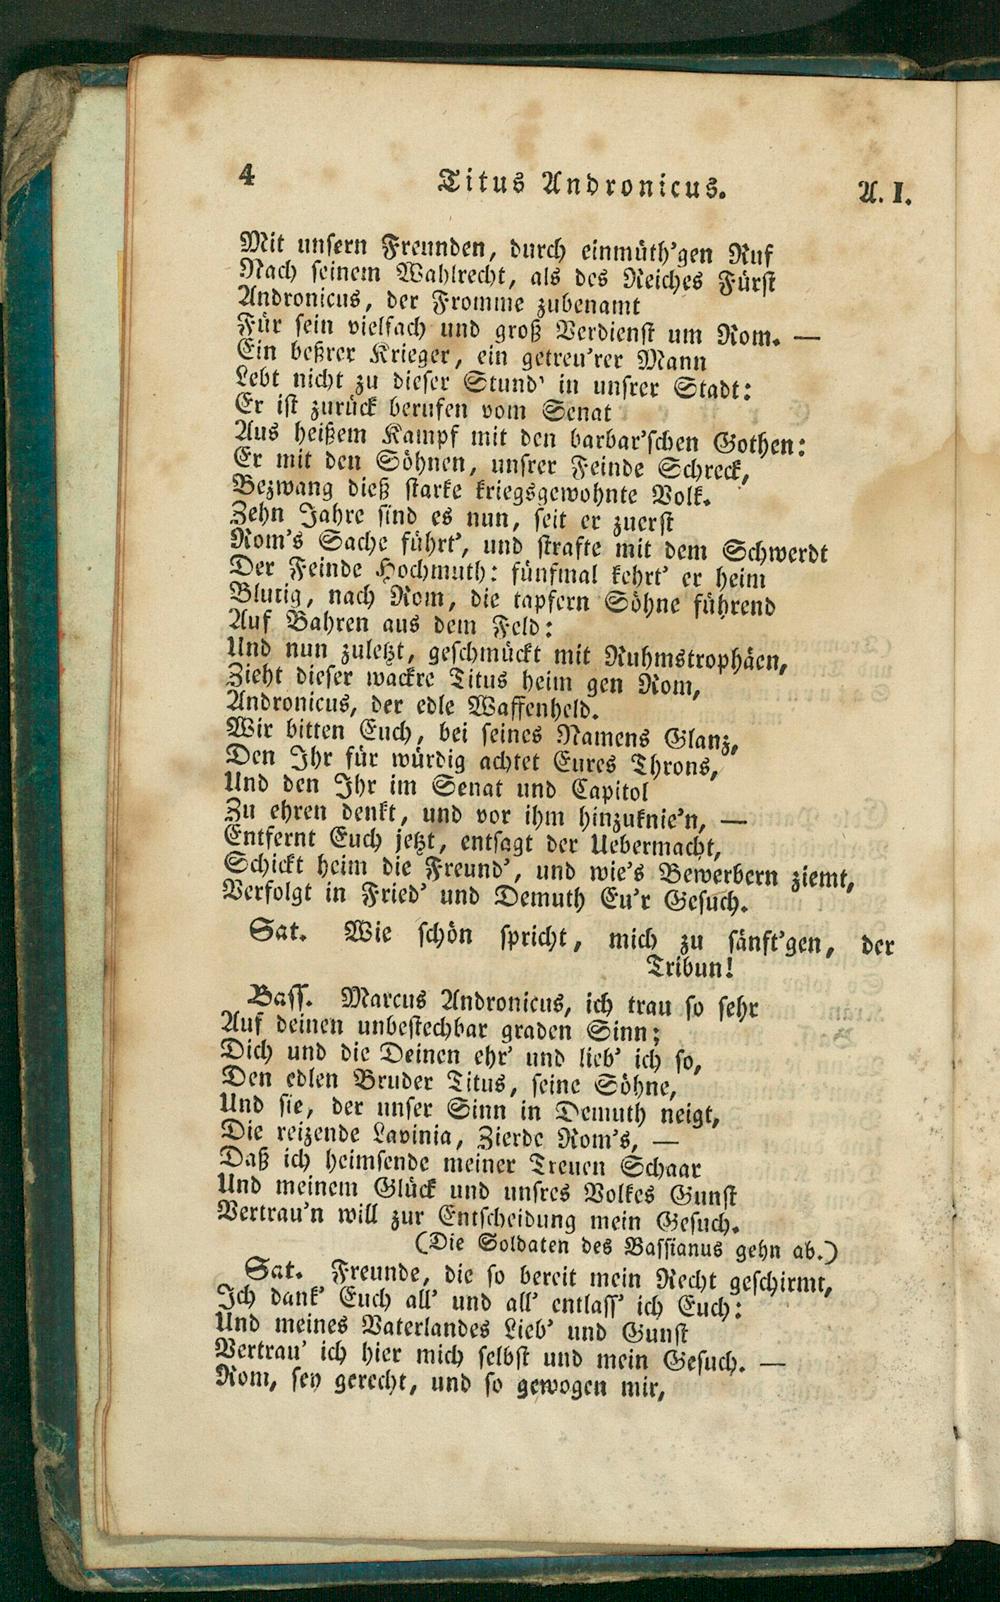 4 Titus Andronicus. A. I.
Mit unsern Freunden, durch einmüth'gen Ruf
Nach seinem Wahlrecht, als des Reiches Fürst
Andronicus, der Fromme zubenamt
Für sein vielfach und groß Verdienst um Rom. —
Ein beßrer Krieger, ein getreu'rer Mann
Lebt nicht zu dieser Stund' in unsrer Stadt:
Er ist zurück berufen vom Senat
Aus heißem Kampf mit den barbar'schen Gothen:
Er mit den Söhnen, unsrer Feinde Schreck,
Bezwang dieß starke kriegsgewohnte Volk.
Zehn Jahre sind es nun, seit er zuerst
Rom's Sache führt', und strafte mit dem Schwerdt
Der Feinde Hochmuth: fünfmal kehrt' er heim
Blutig, nach Rom, die tapfern Söhne führend
Auf Bahren aus dem Feld:
Und nun zuletzt, geschmückt mit Ruhmstrophäen,
Zieht dieser wackre Titus heim gen Rom,
Andronicus, der edle Waffenheld.
Wir bitten Euch, bei seines Namens Glanz,
Den Ihr für würdig achtet Eures Throns,
Und den Ihr im Senat und Capitol
Zu ehren denkt, und vor ihm hinzuknie'n, —
Entfernt Euch jetzt, entsagt der Uebermacht,
Schickt heim die Freund', und wie's Bewerbern ziemt,
Verfolgt in Fried' und Demuth Eu'r Gesuch.
Sat. Wie schön spricht, mich zu sänft'gen, der
Tribun!
Bass. Marcus Andronicus, ich trau so sehr
Auf deinen unbestechbar graden Sinn;
Dich und die Deinen ehr' und lieb' ich so,
Den edlen Bruder Titus, seine Söhne,
Und sie, der unser Sinn in Demuth neigt,
Die reizende Lavinia, Zierde Rom's, —
Daß ich heimsende meiner Treuen Schaar
Und meinem Glück und unsres Volkes Gunst
Vertrau'n will zur Entscheidung mein Gesuch.
(Die Soldaten des Bassianus gehn ab.)
Sat. Freunde, die so bereit mein Recht geschirmt,
Ich dank' Euch all' und all' entlass' ich Euch:
Und meines Vaterlandes Lieb' und Gunst
Vertrau' ich hier mich selbst und mein Gesuch. —
Rom, sey gerecht, und so gewogen mir,